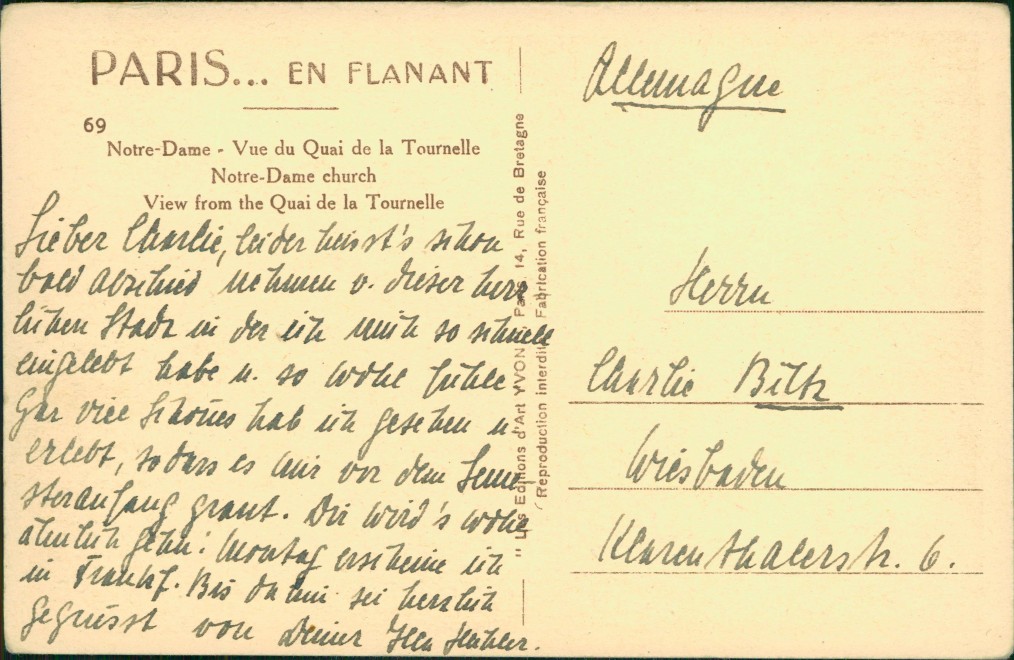 PARIS... EN FLANANT
69
Notre-Dame - Vue du Quai de la Tournelle
Notre-Dame church
View from the Quai de la Tournelle
Lieber Charlie, leider heisst's schon
bald Abschied nehmen v. dieser herr-
lichen Stadt in der ich mich so schnell
eingelebt habe u. so wohl fühle
Gar viel Schönes hab ich gesehen u.
erlebt, sodass es mir vor dem Seme-
steranfang graut. Dir wird's wohl
ähnlich gehn! Montag erscheine ich
in Frankf. Bis dahin sei herzlich
gegrüsst von Deiner
"Les Editions d'Art YVON" Paris. 14, Rue de Bretagne
Reproduction interdite Fabrication française
Allemagne
Herrn
Charlie
Wiesbaden
Klarenthalerstr. 6.